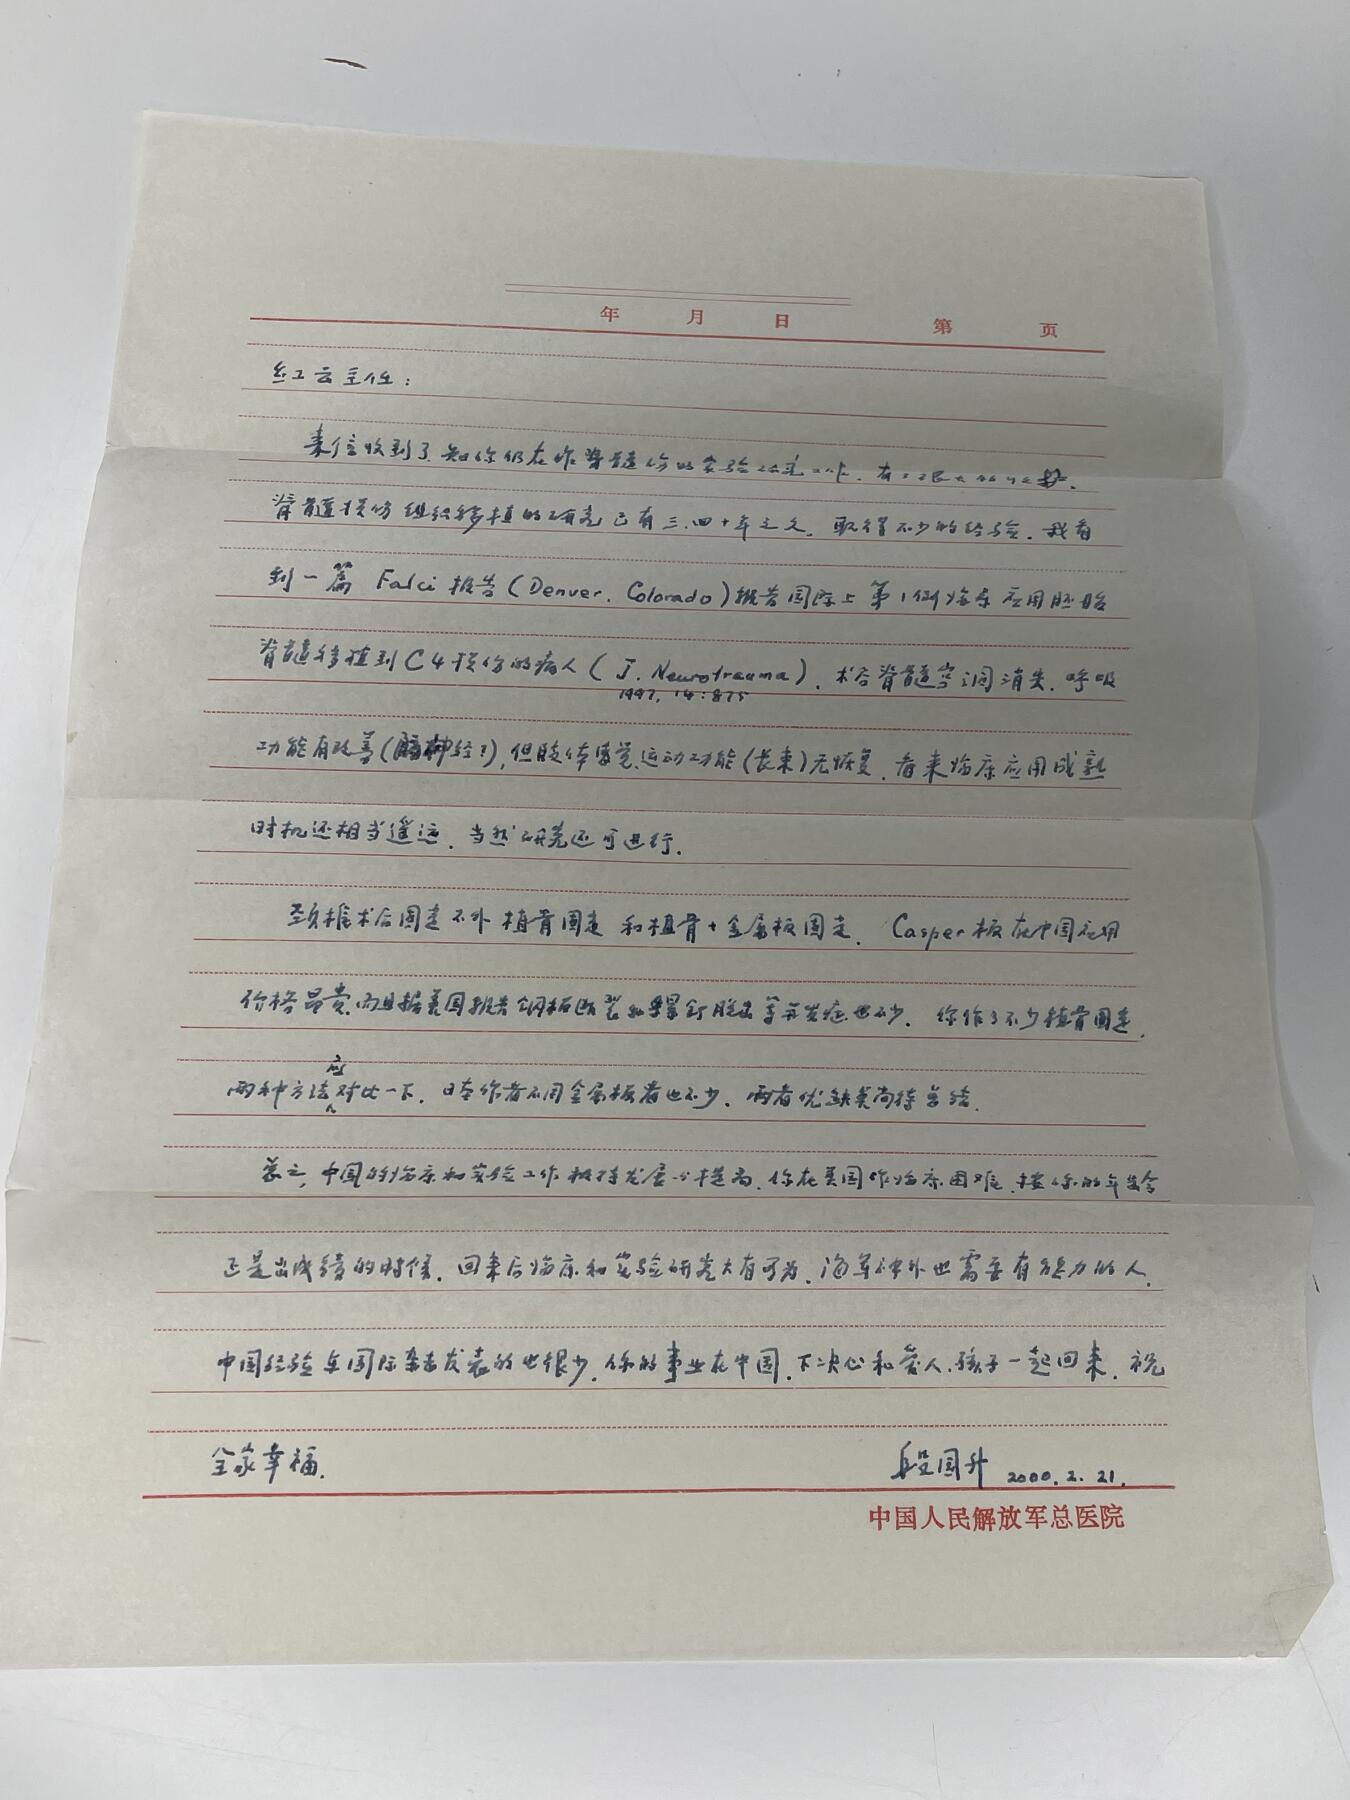 年 月 日 第 页
红云主任：
来信收到了，知你仍在作脊髓伤的实验研究工作，有
脊髓损伤组织移植的研究已有三、四十年之久，取得不少的经验。我看
到一篇 Falci 报告（Denver, Colorado）报告国际上第1例临床应用胚胎
脊髓移植到C4损伤的病人（J. Neurotrauma），术后脊髓空洞消失，呼吸
1997, 14:875
功能有改善（膈神经？），但肢体感觉、运动功能（长束）无恢复，看来临床应用成熟
时机还相当遥远，当然研究还可进行。
颈椎术后固定不外植骨固定和植骨+金属板固定。Casper板在中国应用
价格昂贵，而且据美国报告钢板断裂和螺钉脱出等并发症也不少。你作了不少植骨固定，
两种方法应对比一下，日本作者不用金属板者也不少，两者优缺点尚待总结。
总之，中国的临床和实验工作极待发展和提高，你在美国作临床困难，按你的年龄
正是出成绩的时候，回来后临床和实验研究大有可为，海军神外也需要有能力的人，
中国经验在国际杂志发表的也很少，你的事业在中国，下决心和爱人、孩子一起回来。祝
全家幸福。
段国升 2000.2.21.
中国人民解放军总医院